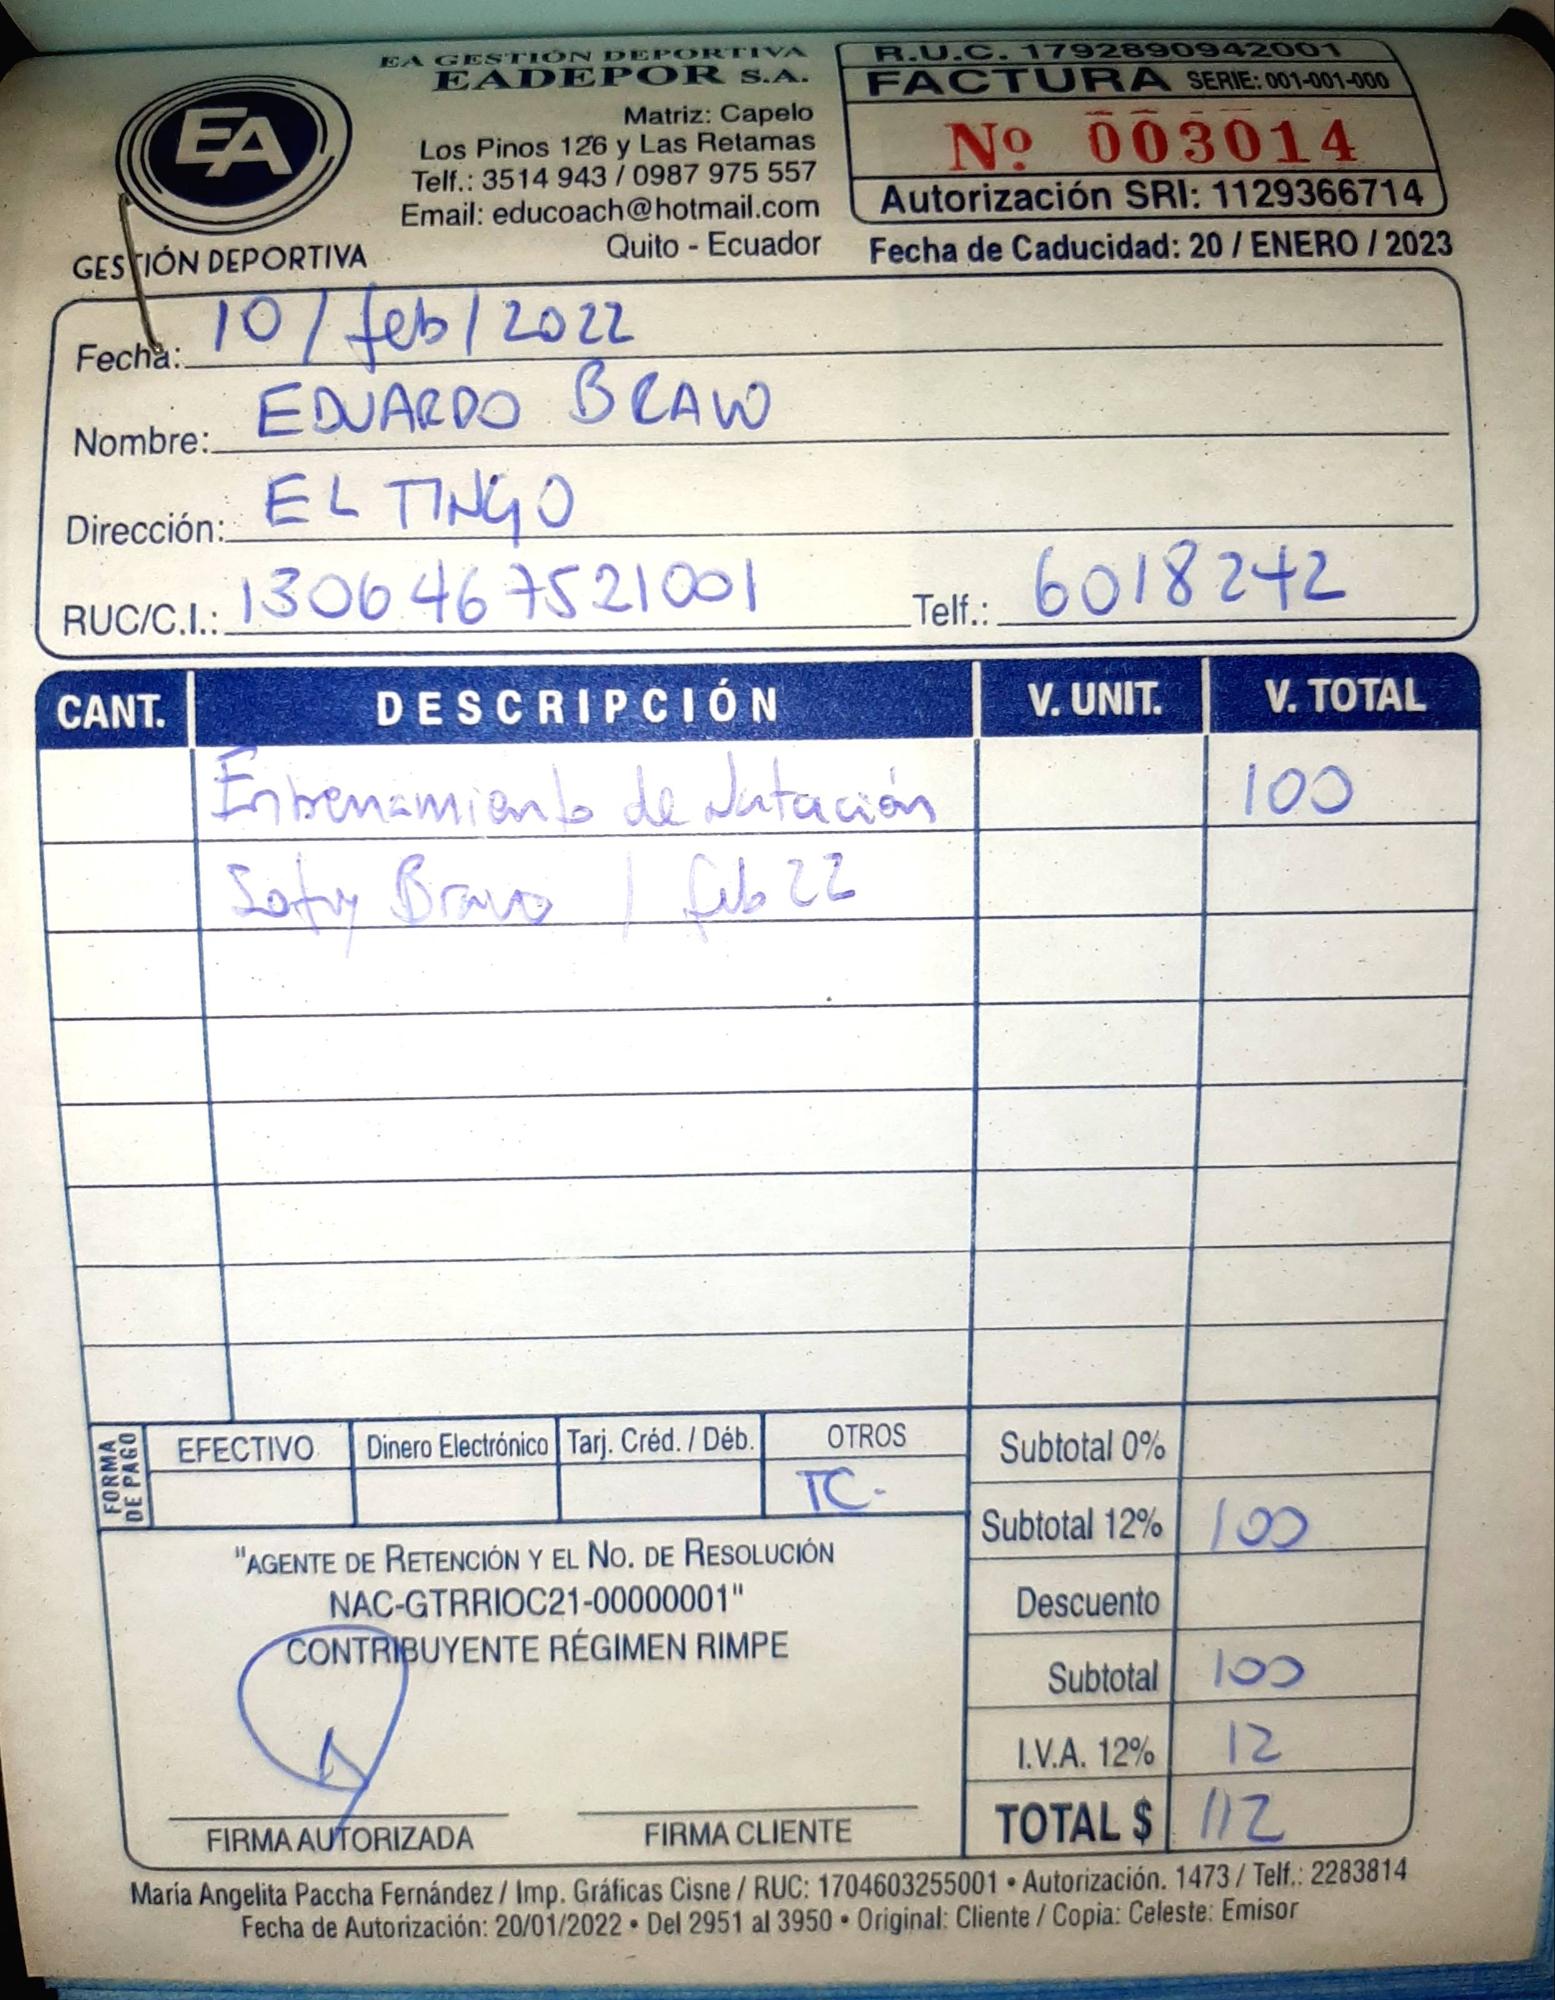 EA GESTIÓN DEPORTIVA
EADEPOR S.A.
Matriz: Capelo
Los Pinos 126 y Las Retamas
Telf.: 3514 943 / 0987 975 557
Email: educoach@hotmail.com
Quito - Ecuador
EA
GESTIÓN DEPORTIVA
R.U.C. 1792890942001
FACTURA SERIE: 001-001-000
Nº 003014
Autorización SRI: 1129366714
Fecha de Caducidad: 20 / ENERO / 2023
Fecha: 10 / feb / 2022
Nombre: EDUARDO BRAVO
Dirección: EL TINGO
RUC/C.I.: 1306467521001 Telf.: 6018242
CANT. DESCRIPCIÓN V. UNIT. V. TOTAL
Entrenamiento de Natación 100
Sofy Bravo / feb 22
FORMA DE PAGO
EFECTIVO Dinero Electrónico Tarj. Créd. / Déb. OTROS
TC.
Subtotal 0%
Subtotal 12% 100
Descuento
Subtotal 100
I.V.A. 12% 12
TOTAL $ 112
"AGENTE DE RETENCIÓN Y EL NO. DE RESOLUCIÓN
NAC-GTRRIOC21-00000001"
CONTRIBUYENTE RÉGIMEN RIMPE
FIRMA AUTORIZADA FIRMA CLIENTE
María Angelita Paccha Fernández / Imp. Gráficas Cisne / RUC: 1704603255001 • Autorización. 1473 / Telf.: 2283814
Fecha de Autorización: 20/01/2022 • Del 2951 al 3950 • Original: Cliente / Copia: Celeste: Emisor